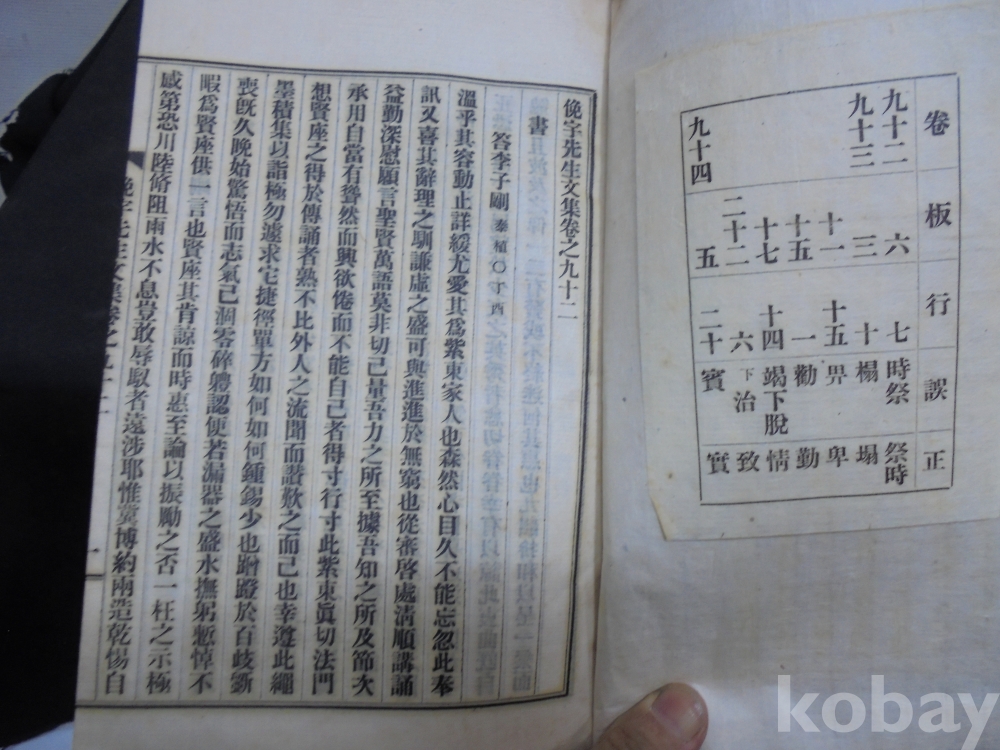 卷 板 行 誤 正
九十二 六 七 時祭 祭時
九十三 三 十 榻 塌
十一 十五 畀 卑
十五 一 勸 勤
十七 十四 竭下脫 情
二十二 六 下治 致
九十四 五 二十 賓 實
俛宇先生文集卷之九十二
書
答李子剛 泰植○丁酉
溫乎其容動止詳緩尤愛其爲紫東家人也森然心目久不能忘忽此奉
訊又喜其辭理之馴謙虛之盛可與進進於無窮也從審啓處淸順講誦
益勤深慰願言聖賢萬語莫非切己量吾力之所至據吾知之所及節次
承用自當有聳然而興欲倦而不能自己者得寸行寸此紫東眞切法門
想賢座之得於傳誦者熟不比外人之流聞而讚歎之而已也幸遵此繩
墨積集以詣極勿遽求它捷徑單方如何如何鍾錫少也蹭蹬於百歧斵
喪旣久晚始驚悟而志氣已凋零碎軆認便若漏器之盛水撫躬慙悼不
暇爲賢座供一言也賢座其肯諒而時惠至論以振勵之否一枉之示極
感第恐川陸脩阻雨水不息豈敢辱馭者遠涉耶惟冀博約兩造乾惕自
kobay